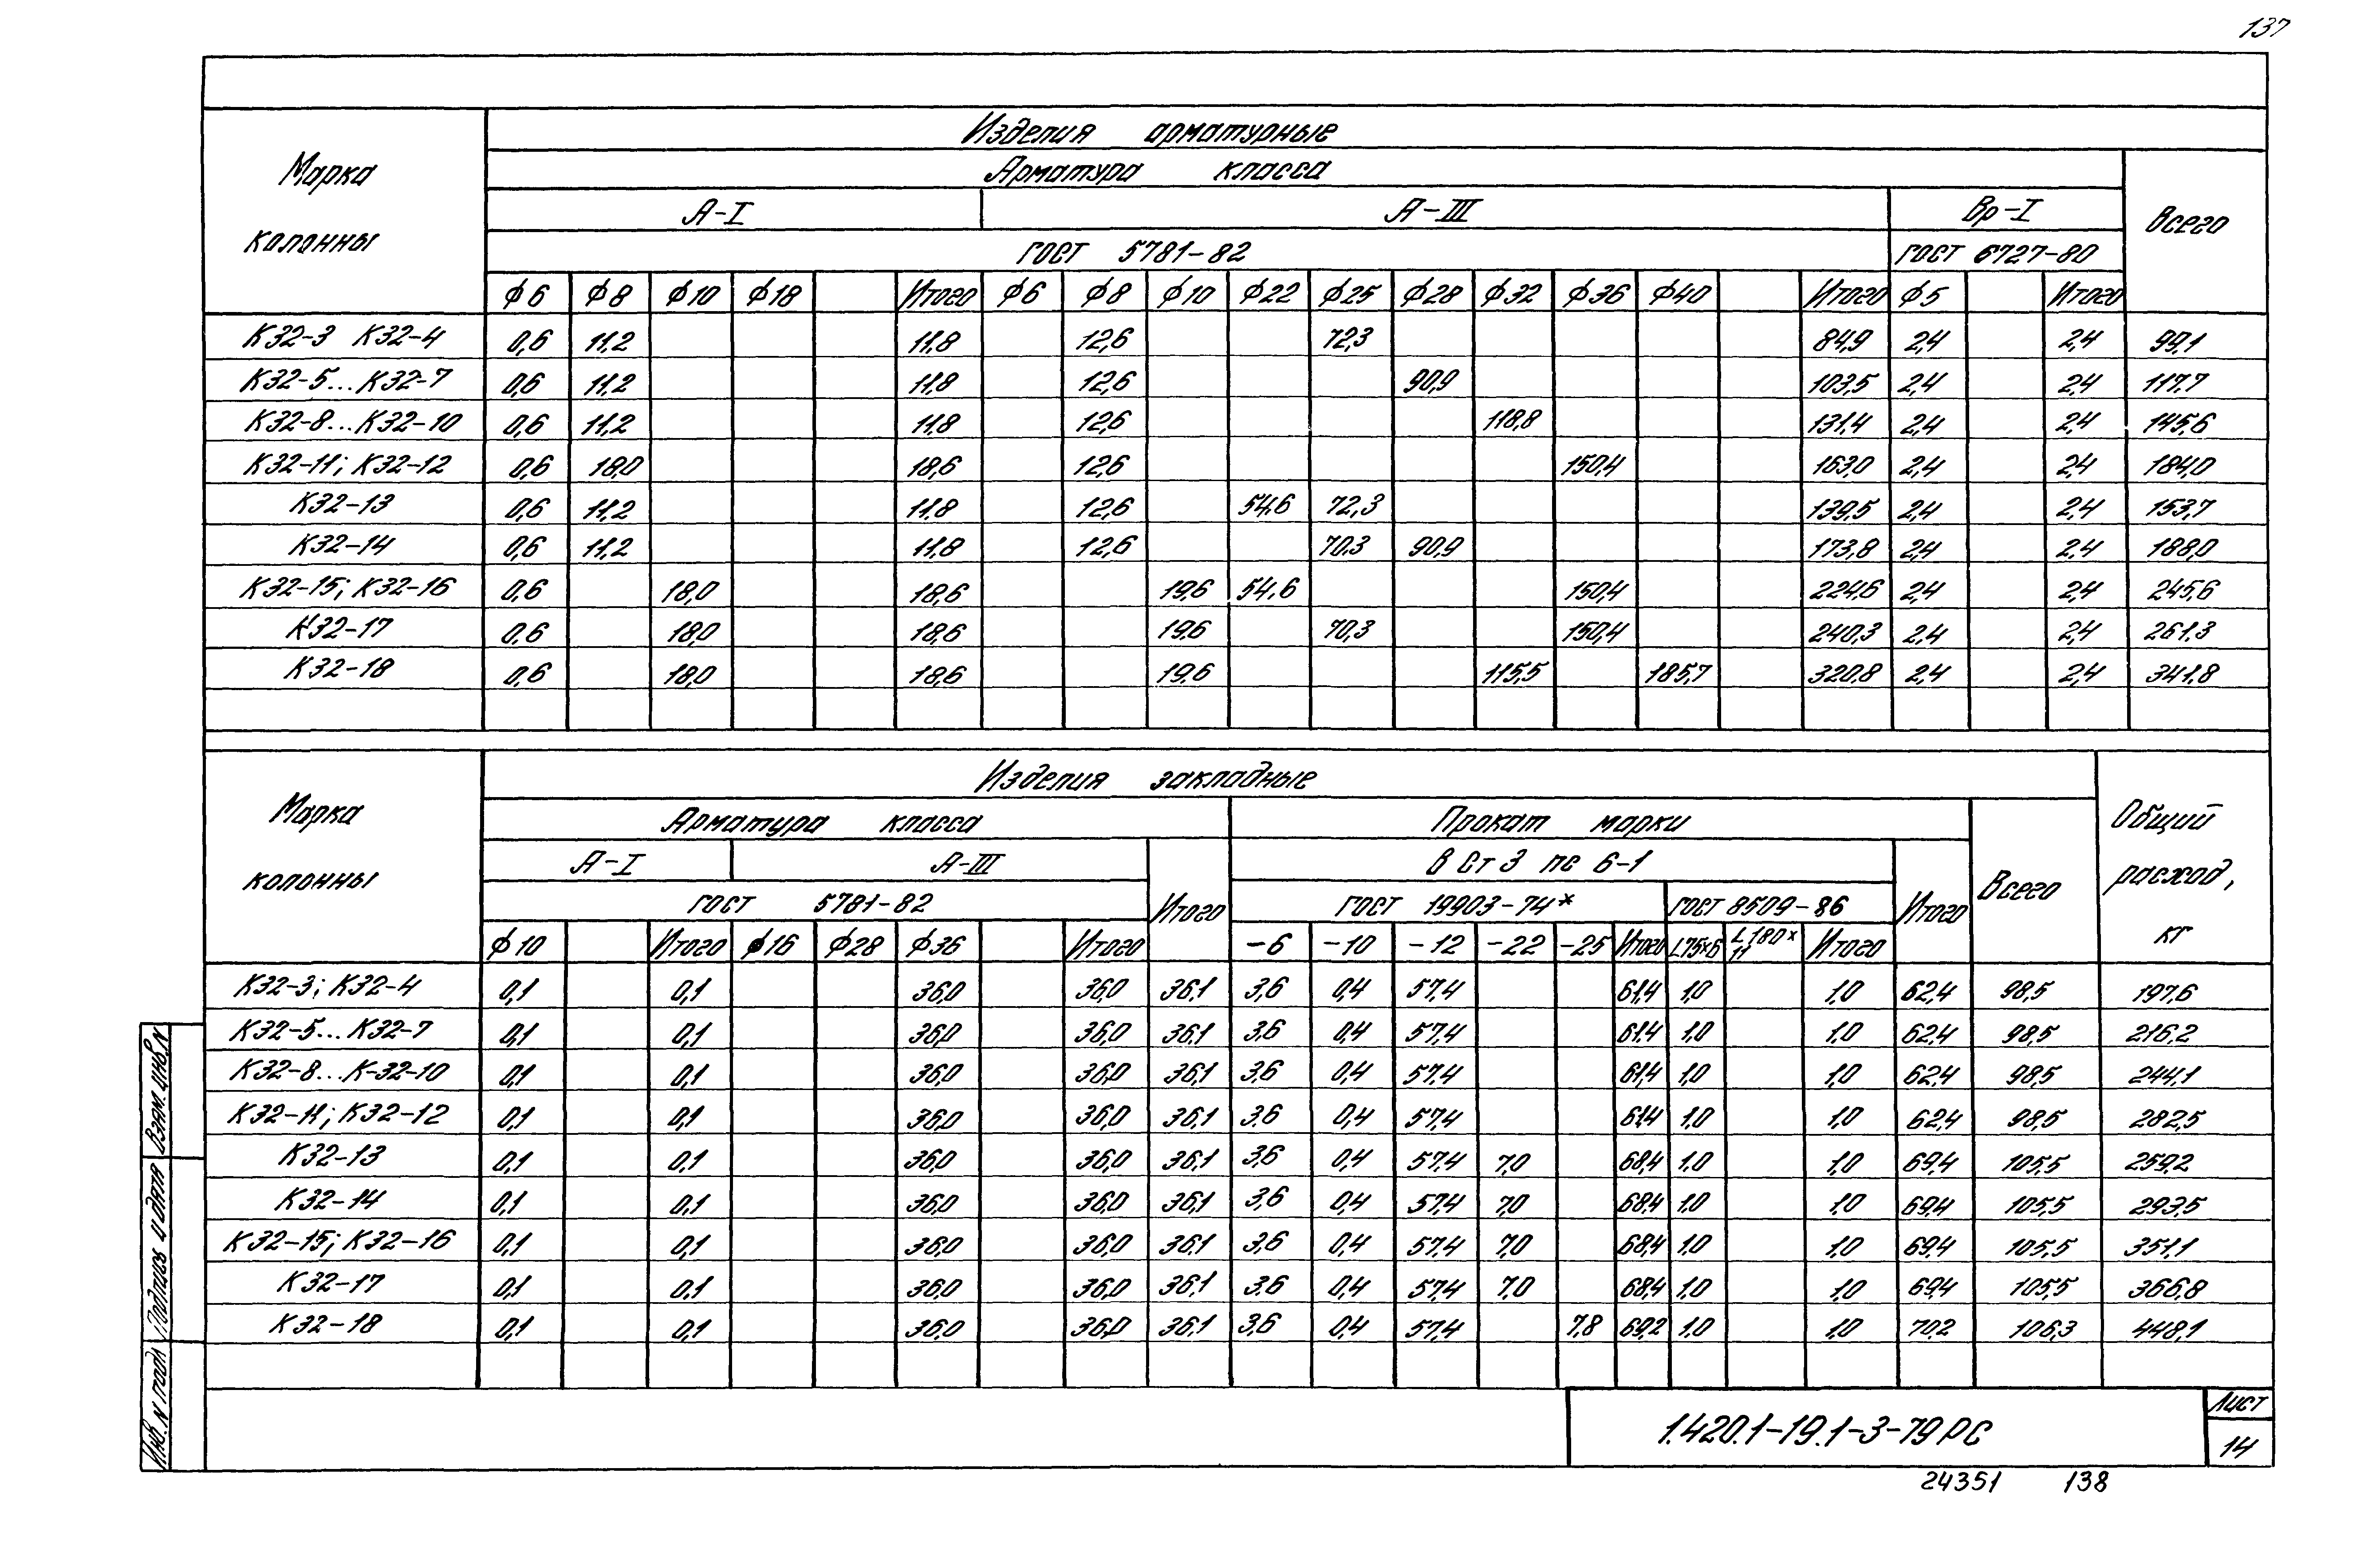 137
Изделия арматурные
Марка колонны
Арматура класса
Всего
А-I А-III Вр-I
ГОСТ 5781-82 ГОСТ 6727-80
ф6 ф8 ф10 ф18 Итого ф6 ф8 ф10 ф22 ф25 ф28 ф32 ф36 ф40 Итого ф5 Итого
К32-3 К32-4 0,6 11,2 11,8 12,6 72,3 84,9 2,4 2,4 99,1
К32-5...К32-7 0,6 11,2 11,8 12,6 90,9 103,5 2,4 2,4 117,7
К32-8...К32-10 0,6 11,2 11,8 12,6 118,8 131,4 2,4 2,4 145,6
К32-11; К32-12 0,6 18,0 18,6 12,6 150,4 163,0 2,4 2,4 184,0
К32-13 0,6 11,2 11,8 12,6 54,6 72,3 139,5 2,4 2,4 153,7
К32-14 0,6 11,2 11,8 12,6 70,3 90,9 173,8 2,4 2,4 188,0
К32-15; К32-16 0,6 18,0 18,6 19,6 54,6 150,4 224,6 2,4 2,4 245,6
К32-17 0,6 18,0 18,6 19,6 70,3 150,4 240,3 2,4 2,4 261,3
К32-18 0,6 18,0 18,6 19,6 115,5 185,7 320,8 2,4 2,4 341,8
Изделия закладные
Марка колонны
Арматура класса Прокат марки
Общий расход, кг
А-I А-III В Ст 3 пс 6-1
Всего
ГОСТ 5781-82 Итого ГОСТ 19903-74* ГОСТ 8509-86 Итого
ф10 Итого ф16 ф28 ф36 Итого -6 -10 -12 -22 -25 Итого L75×6 L180×11 Итого
К32-3; К32-4 0,1 0,1 36,0 36,0 36,1 3,6 0,4 57,4 61,4 1,0 1,0 62,4 98,5 197,6
К32-5...К32-7 0,1 0,1 36,0 36,0 36,1 3,6 0,4 57,4 61,4 1,0 1,0 62,4 98,5 216,2
К32-8...К-32-10 0,1 0,1 36,0 36,0 36,1 3,6 0,4 57,4 61,4 1,0 1,0 62,4 98,5 244,1
К32-11; К32-12 0,1 0,1 36,0 36,0 36,1 3,6 0,4 57,4 61,4 1,0 1,0 62,4 98,5 282,5
К32-13 0,1 0,1 36,0 36,0 36,1 3,6 0,4 57,4 7,0 68,4 1,0 1,0 69,4 105,5 259,2
К32-14 0,1 0,1 36,0 36,0 36,1 3,6 0,4 57,4 7,0 68,4 1,0 1,0 69,4 105,5 293,5
К32-15; К32-16 0,1 0,1 36,0 36,0 36,1 3,6 0,4 57,4 7,0 68,4 1,0 1,0 69,4 105,5 351,1
К32-17 0,1 0,1 36,0 36,0 36,1 3,6 0,4 57,4 7,0 68,4 1,0 1,0 69,4 105,5 366,8
К32-18 0,1 0,1 36,0 36,0 36,1 3,6 0,4 57,4 7,8 69,2 1,0 1,0 70,2 106,3 448,1
Инв. N подл Подпись и дата Взам. инв. N
1.420.1-19.1-3-79РС
Лист
14
24351 138